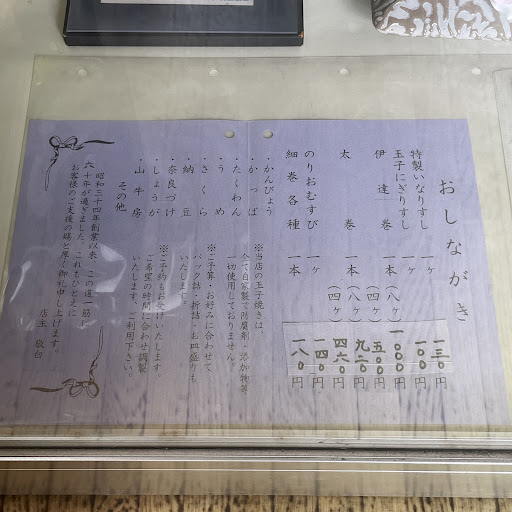 おしながき
特製いなりすし 一ヶ 一三〇円
玉子にぎりすし 一ヶ 一〇〇円
伊達巻 一本(八ヶ) 一〇〇〇円
(四ヶ) 五〇〇円
太巻 一本(八ヶ) 九二〇円
(四ヶ) 四六〇円
のりおむすび 一ヶ 一四〇円
細巻各種 一本 一八〇円
・かんぴょう
・かっぱ
・たくわん
・うめ
・さくら
・納豆
・奈良づけ
・しょうが
・山牛房
その他
※当店の玉子焼きは、
全て自家製で防腐剤・添加物等
一切使用しておりません。
※ご予算・お好みに合わせて
パック詰・折詰・お皿盛りも
いたします。
※ご予約もお受けいたします。
ご希望の時間に合わせ調製
いたします。ご利用下さい。
昭和三十四年創業以来、この道一筋に
六十年が過ぎました。これもひとえに
お客様のご支援の賜と厚く御礼申し上げます。
店主 敬白